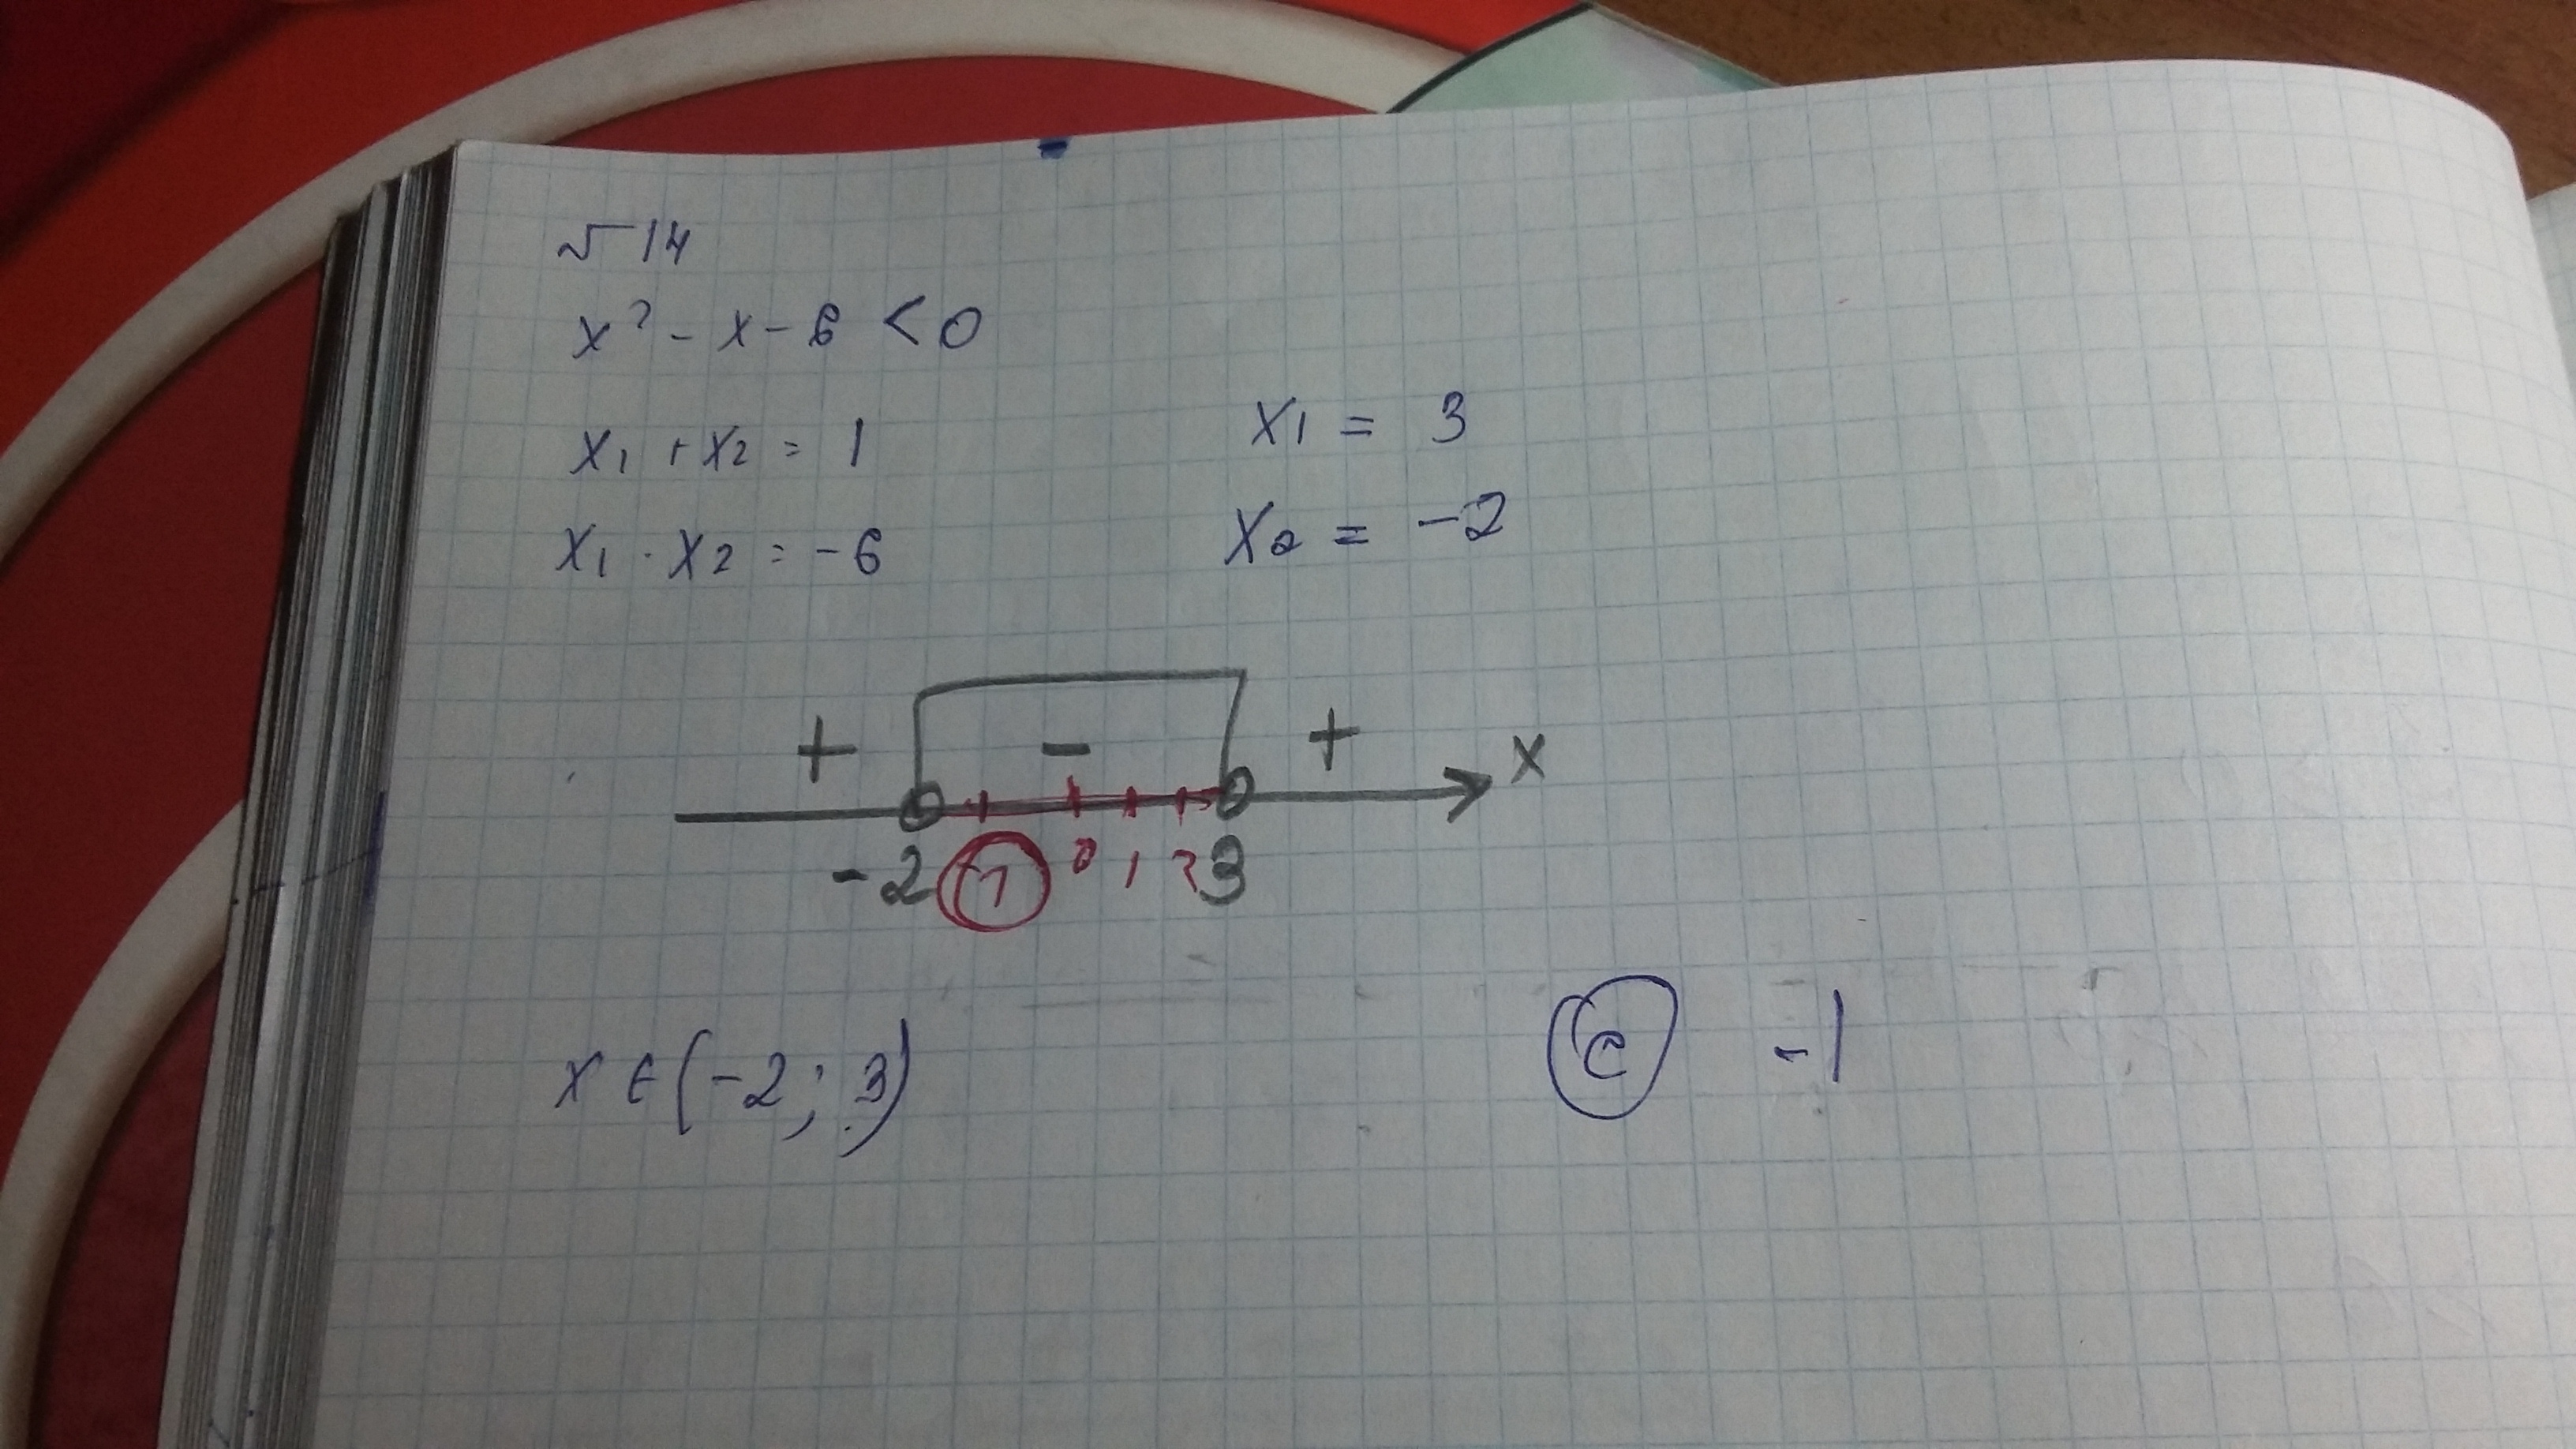 √ 14
x² - x - 6 < 0
x₁ + x₂ = 1
x₁ · x₂ = -6
x₁ = 3
x₂ = -2
+ - + x
-2 -1 0 1 2 3
x ∈ (-2; 3)
C -1